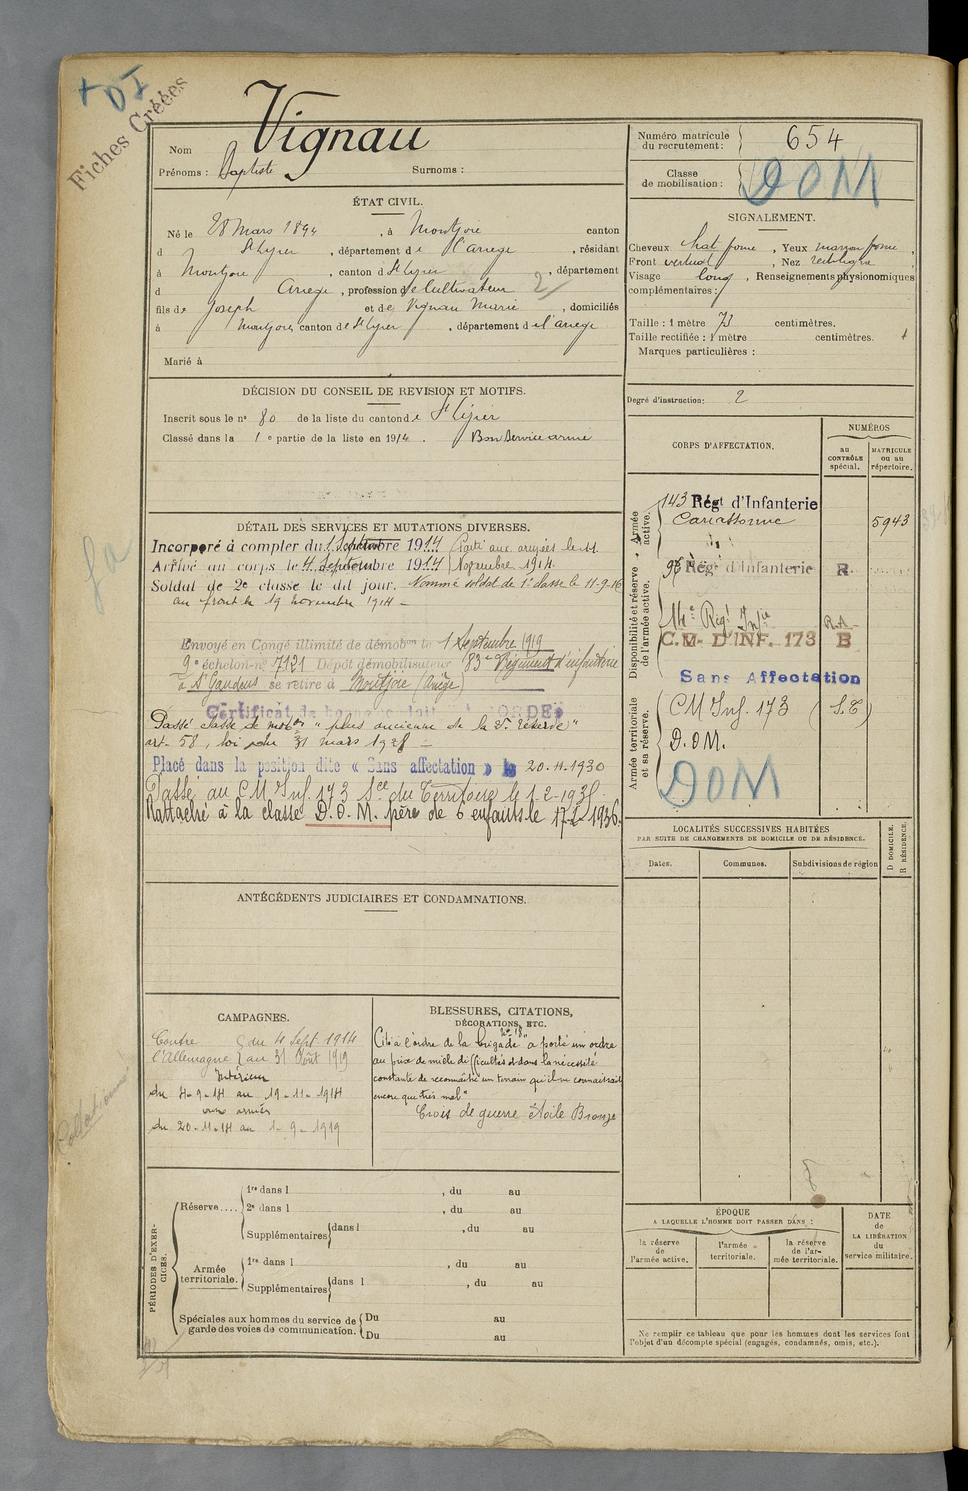 + DI
Fiches Créées
Nom Vignau
Prénoms : Baptiste Surnoms :
ÉTAT CIVIL.
Né le 28 Mars 1894, à Montjoie canton
d St Lizier, département de l'Ariège, résidant
à Montjoie, canton d St Lizier, département
d Ariège, profession de Cultivateur 2
fils de Joseph et de Vignau Marie, domiciliés
à Montjoie canton de St Lizier, département de l'Ariège
Marié à
DÉCISION DU CONSEIL DE REVISION ET MOTIFS.
Inscrit sous le no 80 de la liste du canton de St Lizier
Classé dans la 1e partie de la liste en 1914. Bon Service armé
DÉTAIL DES SERVICES ET MUTATIONS DIVERSES.
Incorporé à compter du 1 Septembre 1914 Parti aux armées le 11
Arrivé au corps le 4 Septembre 1914 Novembre 1914.
Soldat de 2e classe le dit jour. Nommé soldat de 1e classe le 11-9-16
au front le 19 novembre 1914 -
Envoyé en Congé illimité de démobon le 1 Septembre 1919
9e échelon no 7121 Dépôt démobilisateur 83e Régiment d'infanterie
à St Gaudens se retire à Montjoie (Ariège)
Certificat de bonne conduite ACCORDÉ
Passé classe de mobon "plus ancienne de la 2e réserve"
art. 58, loi du 31 mars 1928 -
Placé dans la position dite « Sans affectation » le 20.4.1930
Passé au CM Inf. 173 Sce du Territoire le 1-2-193
Rattaché à la classe D.O.M. père de 6 enfants le 17-2-1936.
ANTÉCÉDENTS JUDICIAIRES ET CONDAMNATIONS.
CAMPAGNES.
Contre du 4 Sept. 1914
l'Allemagne au 31 Août 1919
Intérieur
du 4-9-14 au 19-11-1914
aux armées
du 20-11-14 au 1-9-1919
BLESSURES, CITATIONS,
DÉCORATIONS, ETC.
Cité à l'ordre de la brigade "a porté un ordre
au prix de mille difficultés et dans la nécessité
constante de reconnaître un terrain qu'il ne connaissait
encore que très mal"
Croix de guerre étoile Bronze
PÉRIODES D'EXERCICES.
Réserve.... 1re dans l , du au
2e dans l , du au
Supplémentaires dans l , du au
Armée territoriale. 1re dans l , du au
Supplémentaires dans l , du au
Spéciales aux hommes du service de garde des voies de communication. Du au
Du au
Numéro matricule du recrutement : 654
Classe de mobilisation : DOM
SIGNALEMENT.
Cheveux chat. foncé, Yeux marron foncé,
Front vertical, Nez rectiligne
Visage long, Renseignements physionomiques
complémentaires :
Taille : 1 mètre 73 centimètres.
Taille rectifiée : 1 mètre centimètres.
Marques particulières :
Degré d'instruction : 2
CORPS D'AFFECTATION.
NUMÉROS
au CONTRÔLE spécial.
MATRICULE ou au répertoire.
Armée active.
143 Régt d'Infanterie
Carcassonne 5943
Disponibilité et réserve de l'armée active.
Régt d'Infanterie R
14e Régt Infie
C.M. D'INF. 173 B
Sans Affectation
Armée territoriale et sa réserve.
CM Inf. 173 (S.T.)
D.O.M.
DOM
LOCALITÉS SUCCESSIVES HABITÉES
PAR SUITE DE CHANGEMENTS DE DOMICILE OU DE RÉSIDENCE.
D DOMICILE. R RÉSIDENCE.
Dates. Communes. Subdivisions de région
ÉPOQUE
A LAQUELLE L'HOMME DOIT PASSER DANS :
la réserve de l'armée active.
l'armée territoriale.
la réserve de l'armée territoriale.
DATE de LA LIBÉRATION du service militaire.
Ne remplir ce tableau que pour les hommes dont les services font
l'objet d'un décompte spécial (engagés, condamnés, omis, etc.).